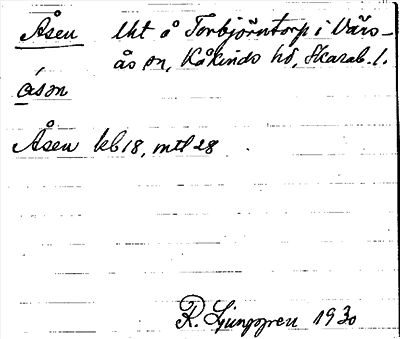 Åsen lht å Torbjörntorp i Värs-
ås sn, Kåkinds hd, Skarab. l.
åsən
Åsen kb 18, mtl 28
R. Ljunggren 1930